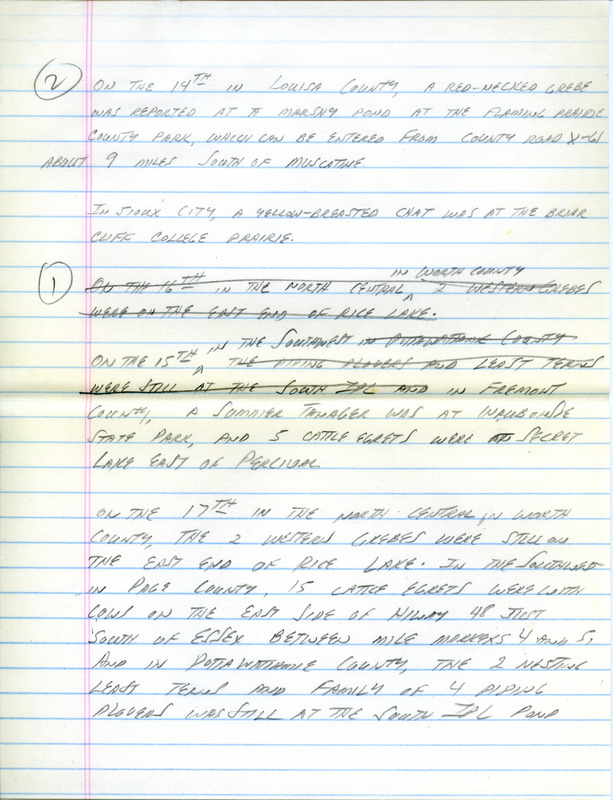 ② ON THE 14TH IN LOUISA COUNTY, A RED-NECKED GREBE
WAS REPORTED AT A MARSHY POND AT THE FLAMING PRAIRIE
COUNTY PARK, WHICH CAN BE ENTERED FROM COUNTY ROAD X-61
ABOUT 9 MILES SOUTH OF MUSCATINE
IN SIOUX CITY, A YELLOW-BREASTED CHAT WAS AT THE BRIAR
CLIFF COLLEGE PRAIRIE.
IN WORTH COUNTY
① ON THE 16TH IN THE NORTH CENTRAL ^ 2 WESTERN GREBES
WERE ON THE EAST END OF RICE LAKE.
IN THE SOUTHWEST IN POTTAWATTAMIE COUNTY
ON THE 15TH ^ THE PIPING PLOVERS AND LEAST TERNS
WERE STILL AT THE SOUTH IPL AND IN FREMONT
COUNTY, A SUMMER TANAGER WAS AT WAUBONSIE
STATE PARK, AND 5 CATTLE EGRETS WERE AT SECRET
LAKE EAST OF PERCIVAL
ON THE 17TH IN THE NORTH CENTRAL, IN WORTH
COUNTY, THE 2 WESTERN GREBES WERE STILL ON
THE EAST END OF RICE LAKE. IN THE SOUTHWEST
IN PAGE COUNTY, 15 CATTLE EGRETS WERE WITH
COWS ON THE EAST SIDE OF HIWAY 48 JUST
SOUTH OF ESSEX BETWEEN MILE MARKERS 4 AND 5,
AND IN POTTAWATTAMIE COUNTY, THE 2 NESTING
LEAST TERNS AND FAMILY OF 4 PIPING
PLOVERS WAS STILL AT THE SOUTH IPL POND